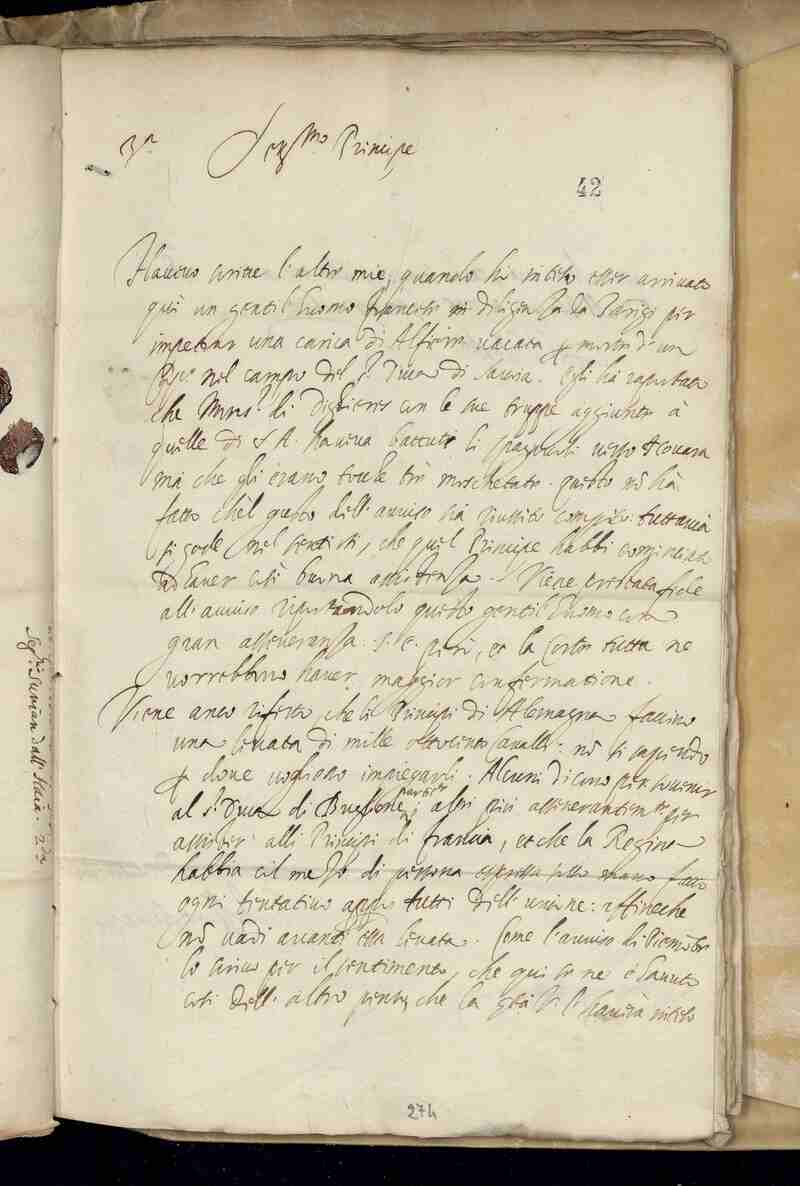 3.ª Ser.mo Principe
42
Havevo scritte l'altre mie, quando hò inteso esser arrivato
quì un gentil'huomo francese in diligenza da Parigi per
impetrar una carica di Alfiere vacata morte d'un
nel campo del s.r Duca di Savoia. Egli hà raportato
che Mons.r di Dighieres con le sue truppe aggiunte à
quelle di S. A. haveva battuti li spagnuoli verso
mà che gli erano toccate trè moschettate. questo nõ hà
fatto ch'el gusto dell'aviso sia riuscito compito: tuttavia
si gode nel sentirsi, che quel Principe habbi cominciato
ad haver così buona assistenza. Viene prestata fede
all'aviso riportandolo questo gentil'huomo con
gran asseveranza. S. E. però, et la Corte tutta ne
vorrebbono haver maggior confirmatione.
Viene anco riferto, che li Principi di Alemagna faccino
una levata di mille ottocento cavalli: nõ si sapendo
dove vogliono impiegarli. Alcuni dicono per sovenir
al s.r Duca di Buglione; altri più asseverantem.te per
assister alli Principi di Francia, et che la Regina
habbia col mezo di persona espressa sotto mano fatto
ogni tentativo appo tutti dell'unione: affineche
nõ vadi avanti essa levata. Come l'aviso di Piemõte
lo scrivo per il sentimento, che qui se ne è havuto
così dell'altro penso che la haverà inteso
274
Seg.rio Surian dall'Haia. 2da